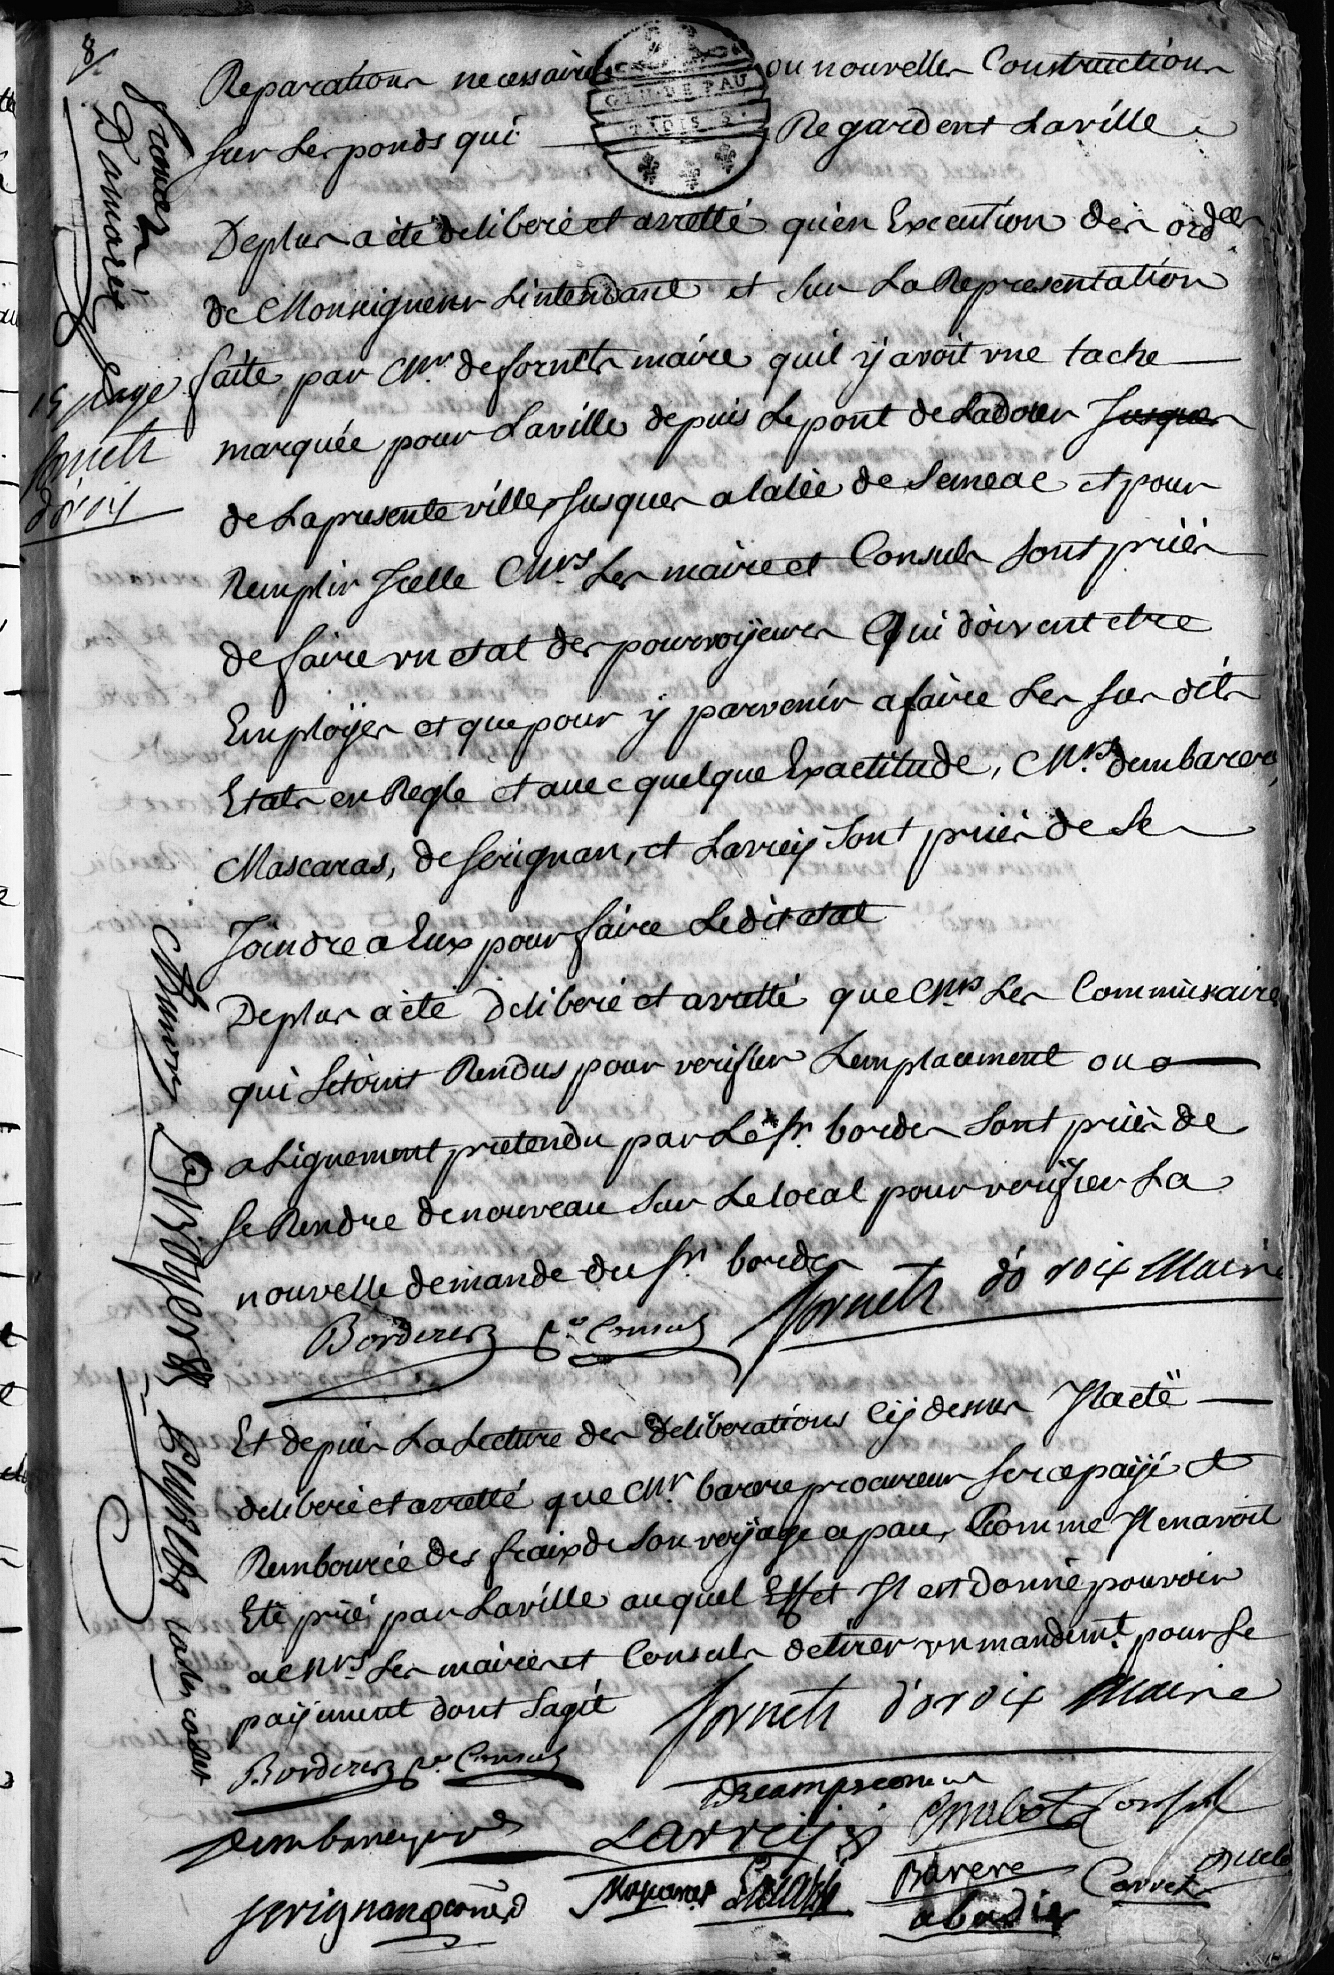 8
Reparations necessaires ou nouvelles Constructions
sur Les ponds qui Regardent Laville
GEN. DE PAU
TROIS S.
Deplus a été deliberé et arretté qu'en Execution des ord.ces
de Monseigneur Lintendant et sur La Representation
faite par Mr. de fornets maire quil y avoit une tache
marquée pour Laville depuis Lepont de Ladour Jusques
de Lapresente ville, Jusques a lalée de Semeac et pour
Remplir Jcelle Mrs. Les maire et Consuls sont priés
de faire un etat des pourvoyeurs Qui doivent etre
Employés et que pour y parvenir a faire Les sus dits
Etats en Regle et avec quelque Exactitude, Mrs. dembarere,
Mascaras, de Serignan, et Larrey sont priés de Se
Joindre a Eux pour faire Ledit etat
Deplus a été deliberé et arretté que Mrs Les Commissaires
qui Setoint Rendus pour verifier Lemplacement ou
alignement pretendu par Le Sr. bordes sont priés de
se Rendre denouveau Sur Lelocal pour verifier La
nouvelle demande du Sr. bordes
fornets d'oroix Maire
Borderes Consul
Et depuis La Lecture des deliberations Cy dessus Jlaeté
deliberé et arretté que Mr barere procureur sera payé et
Rembourcée des fraix de Son voyage a pau, Comme Jl enavoit
Eté prié par Laville auquel Effet Jl est donné pouvoir
a Mrs. Les maire et Consuls detirer un mandemt. pour Le
payement dont Sagit
fornets d'oroix Maire
Borderes Consul
Larreÿ
Barere
abadie
Carrere
15 page
fornets
d'oroix